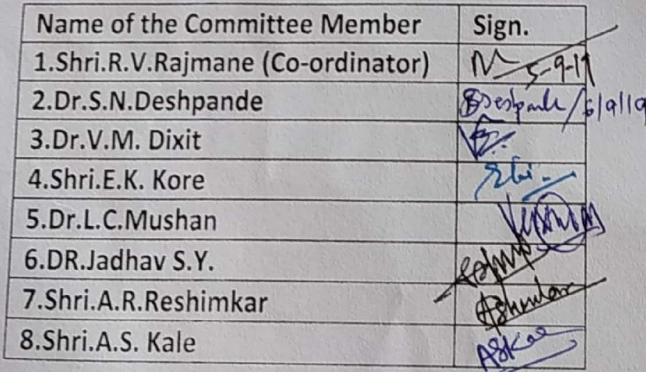 Name of the Committee Member Sign.
1.Shri.R.V.Rajmane (Co-ordinator) 5-9-19
2.Dr.S.N.Deshpande SDeshpande/6/9/19
3.Dr.V.M. Dixit
4.Shri.E.K. Kore
5.Dr.L.C.Mushan
6.DR.Jadhav S.Y.
7.Shri.A.R.Reshimkar
8.Shri.A.S. Kale ASKale